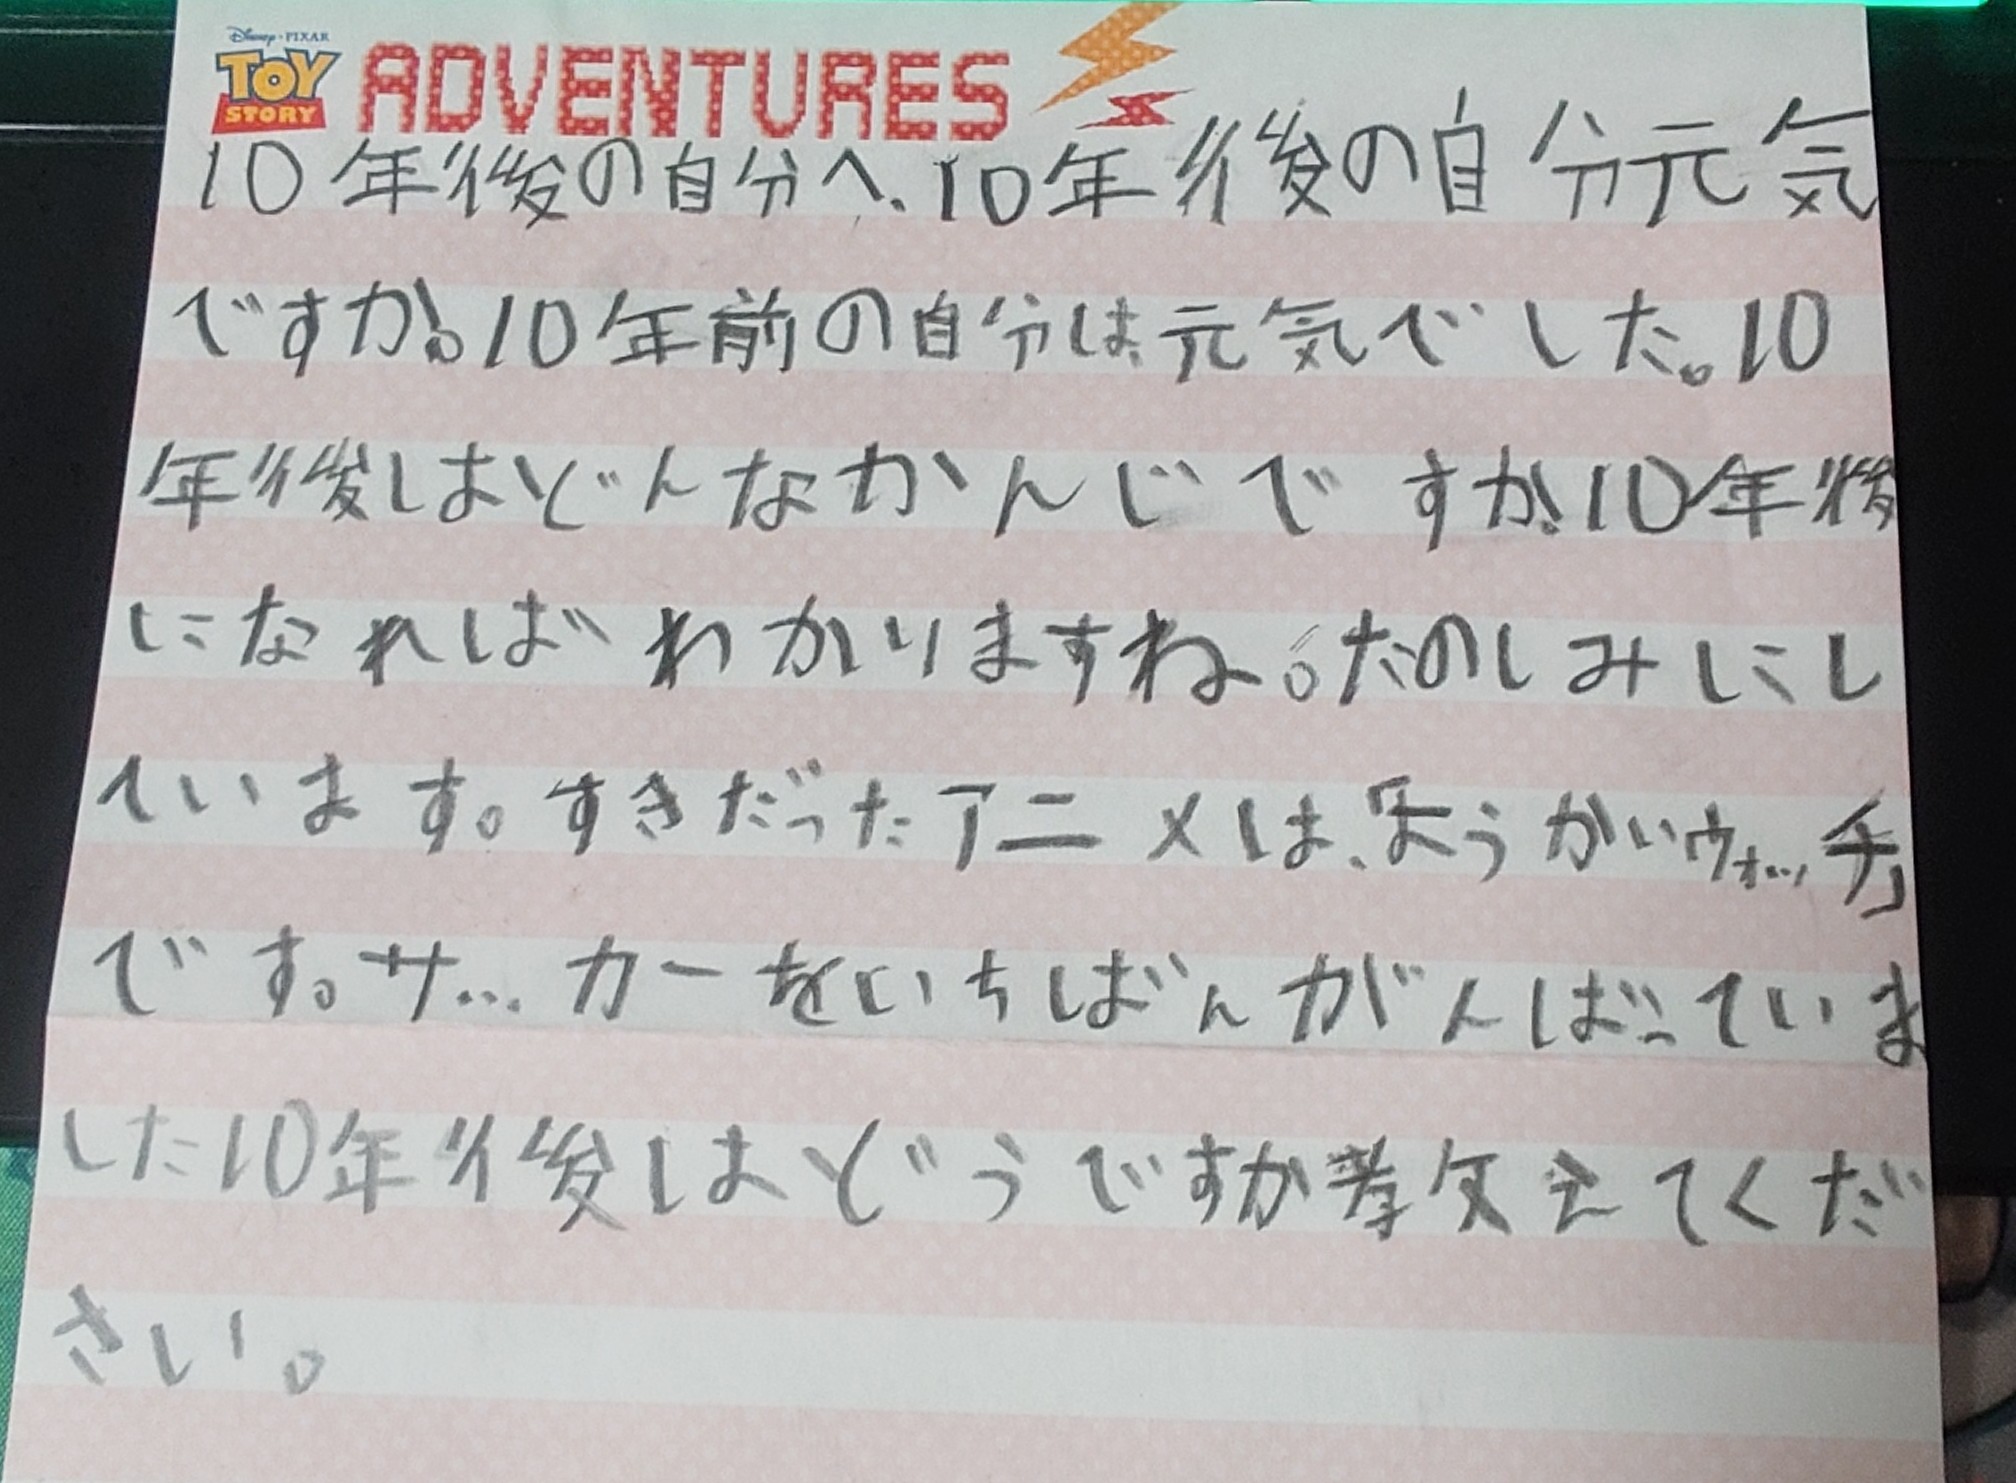 Disney・PIXAR
TOY
STORY
ADVENTURES
10年後の自分へ、10年後の自分元気
ですか。10年前の自分は元気でした。10
年後はどんなかんじですか。10年後
になればわかりますね。たのしみにし
ています。すきだったアニメは、「ようかいウォッチ」
です。サッカーをいちばんがんばっていま
した10年後はどうですか教えてくだ
さい。